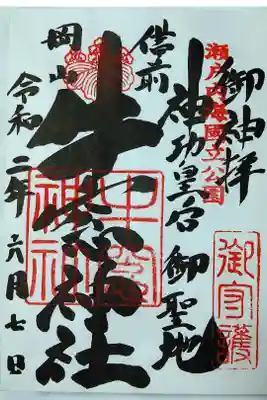 御神拝
瀬戸内海國立公園
神功皇后御聖地
備前
牛窓神社
岡山
令和二年六月七日
牛窓
神社
御守護